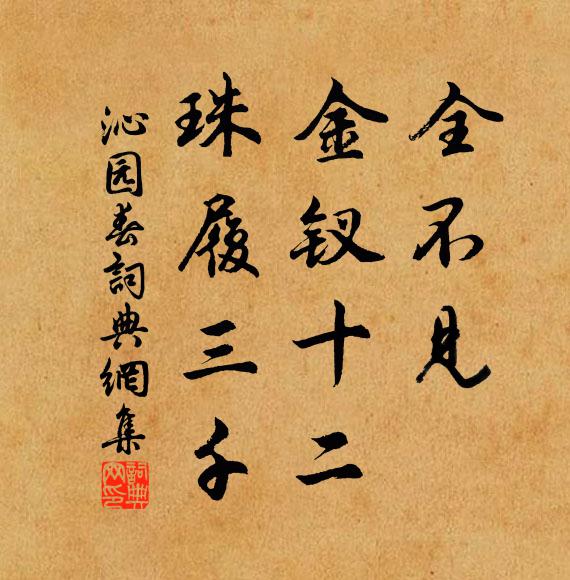 全不见
金钗十二
珠履三千
沁园春詞典網集
詞典网印